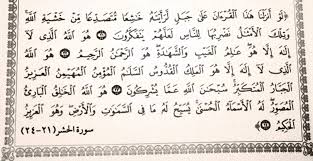 ﴿لَوْ أَنزَلْنَا هَٰذَا الْقُرْءَانَ عَلَىٰ جَبَلٍ لَّرَأَيْتَهُ خَٰشِعًا مُّتَصَدِّعًا مِّنْ خَشْيَةِ اللَّهِ
وَتِلْكَ الْأَمْثَٰلُ نَضْرِبُهَا لِلنَّاسِ لَعَلَّهُمْ يَتَفَكَّرُونَ ۝ هُوَ اللَّهُ الَّذِى لَآ
إِلَٰهَ إِلَّا هُوَ عَٰلِمُ الْغَيْبِ وَالشَّهَٰدَةِ هُوَ الرَّحْمَٰنُ الرَّحِيمُ ۝ هُوَ اللَّهُ
الَّذِى لَآ إِلَٰهَ إِلَّا هُوَ الْمَلِكُ الْقُدُّوسُ السَّلَٰمُ الْمُؤْمِنُ الْمُهَيْمِنُ الْعَزِيزُ
الْجَبَّارُ الْمُتَكَبِّرُ سُبْحَٰنَ اللَّهِ عَمَّا يُشْرِكُونَ ۝ هُوَ اللَّهُ الْخَٰلِقُ الْبَارِئُ
الْمُصَوِّرُ لَهُ الْأَسْمَآءُ الْحُسْنَىٰ يُسَبِّحُ لَهُ مَا فِى السَّمَٰوَٰتِ وَالْأَرْضِ وَهُوَ الْعَزِيزُ
الْحَكِيمُ ۝﴾
سورة الحشر (٢١-٢٤)